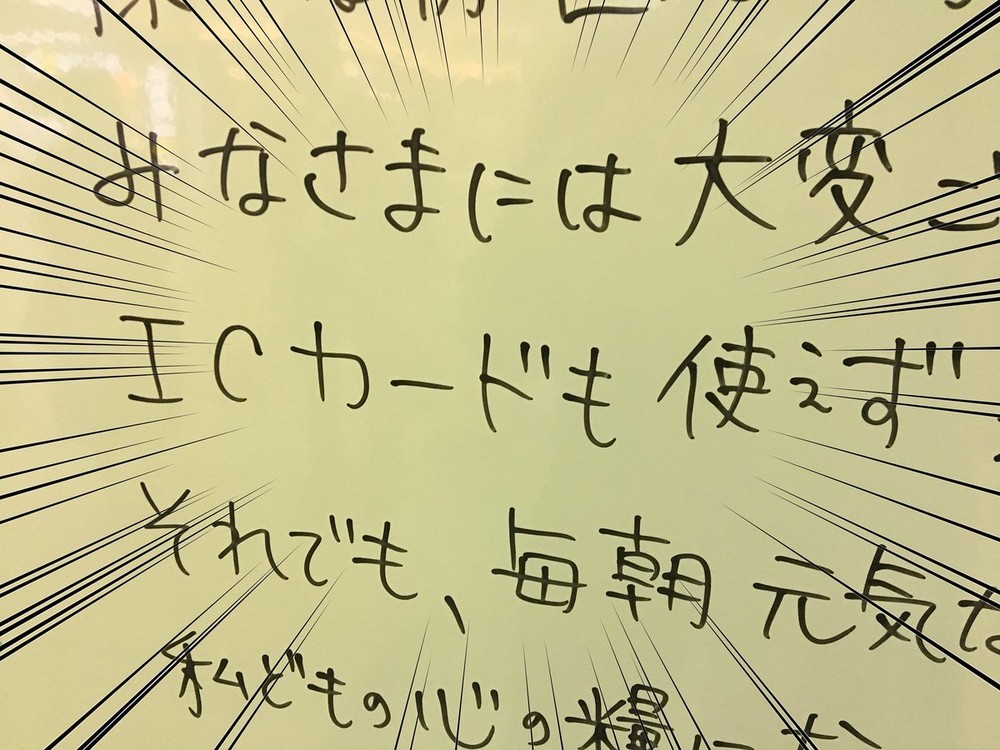 みなさまには大変ご
ICカードも使えず、
それでも、毎朝元気な
私どもの心の糧に